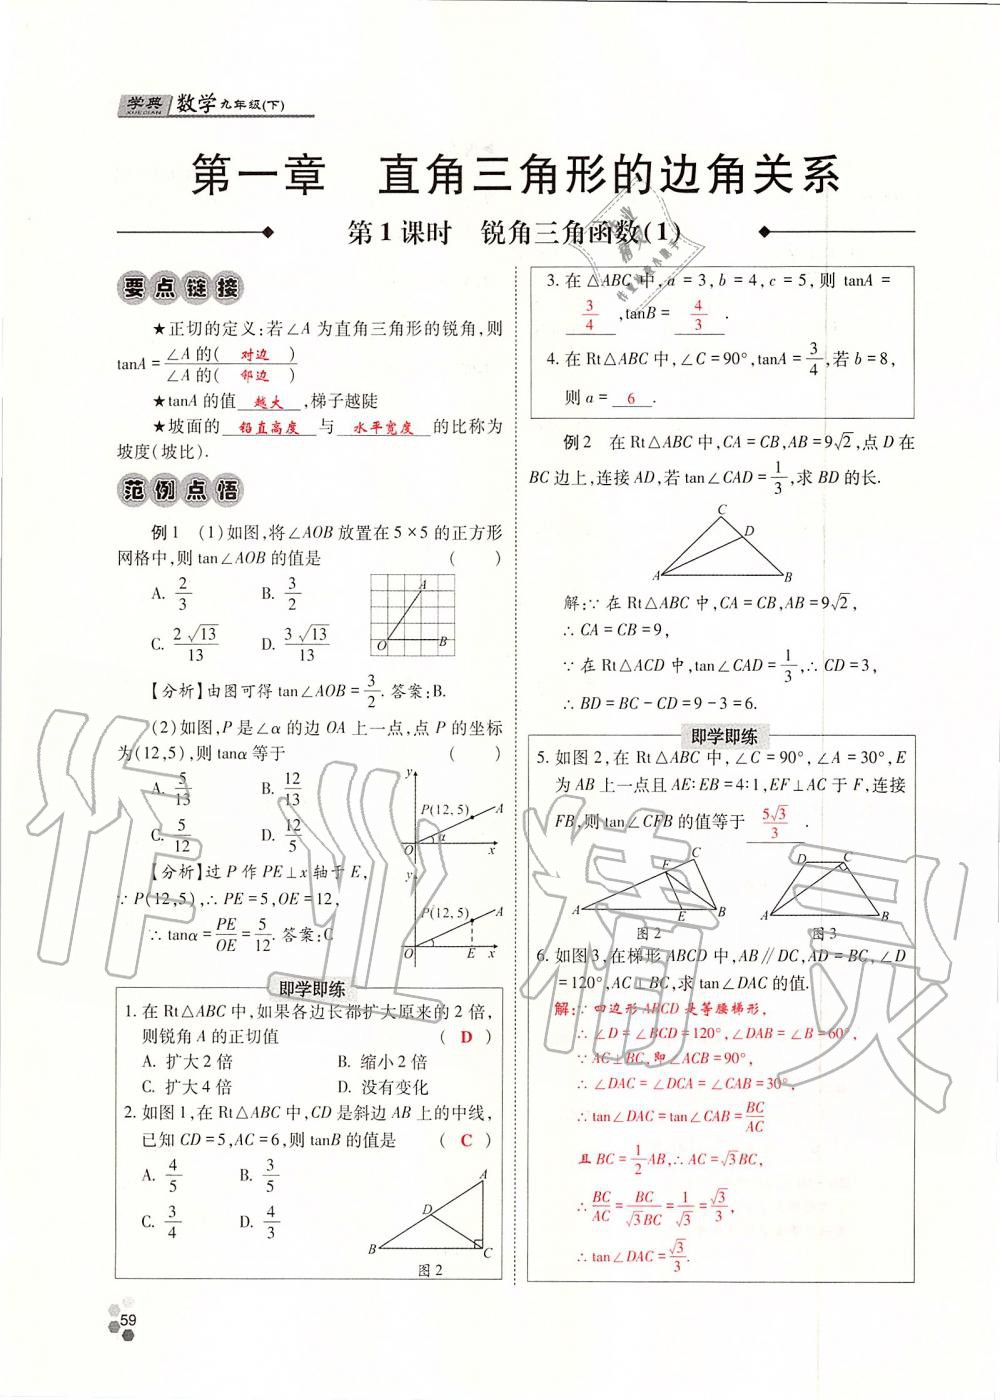 学典 数学九年级(下)
XUEDIAN
第一章 直角三角形的边角关系
第1课时 锐角三角函数(1)
要点链接
★正切的定义:若∠A 为直角三角形的锐角,则
tanA = ∠A 的( 对边 ) / ∠A 的( 邻边 )
★tanA 的值 越大 ,梯子越陡
★坡面的 铅直高度 与 水平宽度 的比称为
坡度(坡比).
范例点悟
例1 (1)如图,将∠AOB 放置在 5×5 的正方形
网格中,则 tan∠AOB 的值是 ( )
A. 2/3 B. 3/2
C. 2√13/13 D. 3√13/13
A
O B
【分析】由图可得 tan∠AOB = 3/2. 答案:B.
(2)如图,P 是∠α 的边 OA 上一点,点 P 的坐标
为(12,5),则 tanα 等于 ( )
A. 5/13 B. 12/13
C. 5/12 D. 12/5
y
P(12,5) A
α
O x
【分析】过 P 作 PE⊥x 轴于 E,
∵P(12,5),∴PE=5,OE=12,
∴tanα = PE/OE = 5/12. 答案:C
y
P(12,5) A
O E x
即学即练
1. 在 Rt△ABC 中,如果各边长都扩大原来的 2 倍,
则锐角 A 的正切值 ( D )
A. 扩大 2 倍 B. 缩小 2 倍
C. 扩大 4 倍 D. 没有变化
2. 如图 1,在 Rt△ABC 中,CD 是斜边 AB 上的中线,
已知 CD=5,AC=6,则 tanB 的值是 ( C )
A. 4/5 B. 3/5
C. 3/4 D. 4/3
A
D
B C
图 2
59
3. 在△ABC 中,a=3,b=4,c=5,则 tanA =
3/4 ,tanB = 4/3 .
4. 在 Rt△ABC 中,∠C=90°,tanA = 3/4,若 b=8,
则 a = 6 .
例2 在 Rt△ABC 中,CA=CB,AB=9√2,点 D 在
BC 边上,连接 AD,若 tan∠CAD = 1/3,求 BD 的长.
C
D
A B
解:∵在 Rt△ABC 中,CA=CB,AB=9√2,
∴CA=CB=9,
∵在 Rt△ACD 中,tan∠CAD = 1/3,∴CD=3,
∴BD=BC-CD=9-3=6.
即学即练
5. 如图 2,在 Rt△ABC 中,∠C=90°,∠A=30°,E
为 AB 上一点且 AE∶EB=4∶1,EF⊥AC 于 F,连接
FB,则 tan∠CFB 的值等于 5√3/3 .
C
F
A E B
图 2
D C
A B
图 3
6. 如图 3,在梯形 ABCD 中,AB∥DC,AD=BC,∠D
=120°,AC⊥BC,求 tan∠DAC 的值.
解:∵四边形 ABCD 是等腰梯形,
∴∠D=∠BCD=120°,∠DAB=∠B=60°,
∵AC⊥BC,即∠ACB=90°,
∴∠DAC=∠DCA=∠CAB=30°,
∴tan∠DAC=tan∠CAB= BC/AC
且 BC= 1/2 AB,∴AC=√3BC,
∴BC/AC = BC/√3BC = 1/√3 = √3/3,
∴tan∠DAC= √3/3.
作业精灵